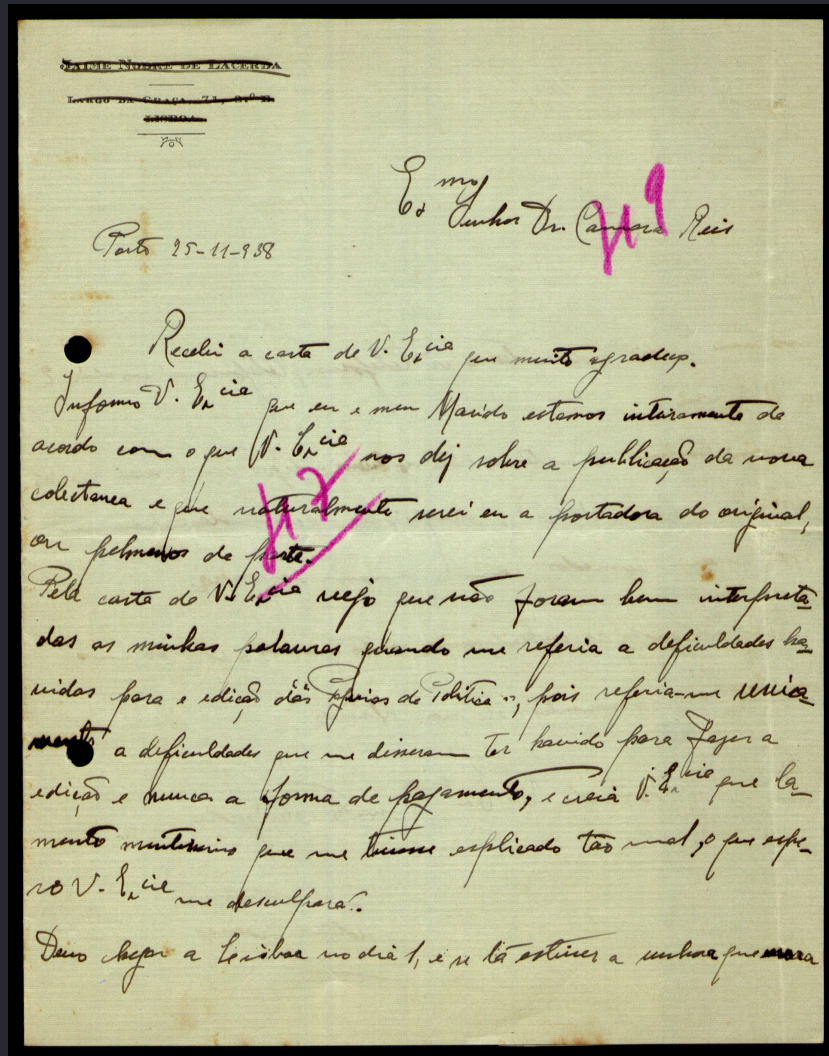 JAIME NOBRE DE LACERDA
LARGO DA GRAÇA, 71, 3.º E.
LISBOA
Exmo
Senhor Dr. Camara Reis
719
Porto 25-11-938
Recebi a carta de V. Excia que muito agradeço.
Informo V. Excia que eu e meu Marido estamos inteiramente de
acordo com o que V. Excia nos diz sobre a publicação da nova
colectanea e que naturalmente serei eu a portadora do original,
ou pelmenos de parte.
Pela carta de V. Excia vejo que não foram bem interpreta-
das as minhas palavras quando me referia a deficuldades ha-
vidas para e edição das "Paginas de Politica", pois referia-me unica-
mente a deficuldades que me disseram ter havido para fazer a
edição e nunca a forma de pagamento, e creia V. Excia que la-
mento muitissimo que me tivesse explicado tão mal, o que espe-
ro V. Excia me desculpará.
Devo chegar a Lisboa no dia 1, e se lá estiver a senhora que mora